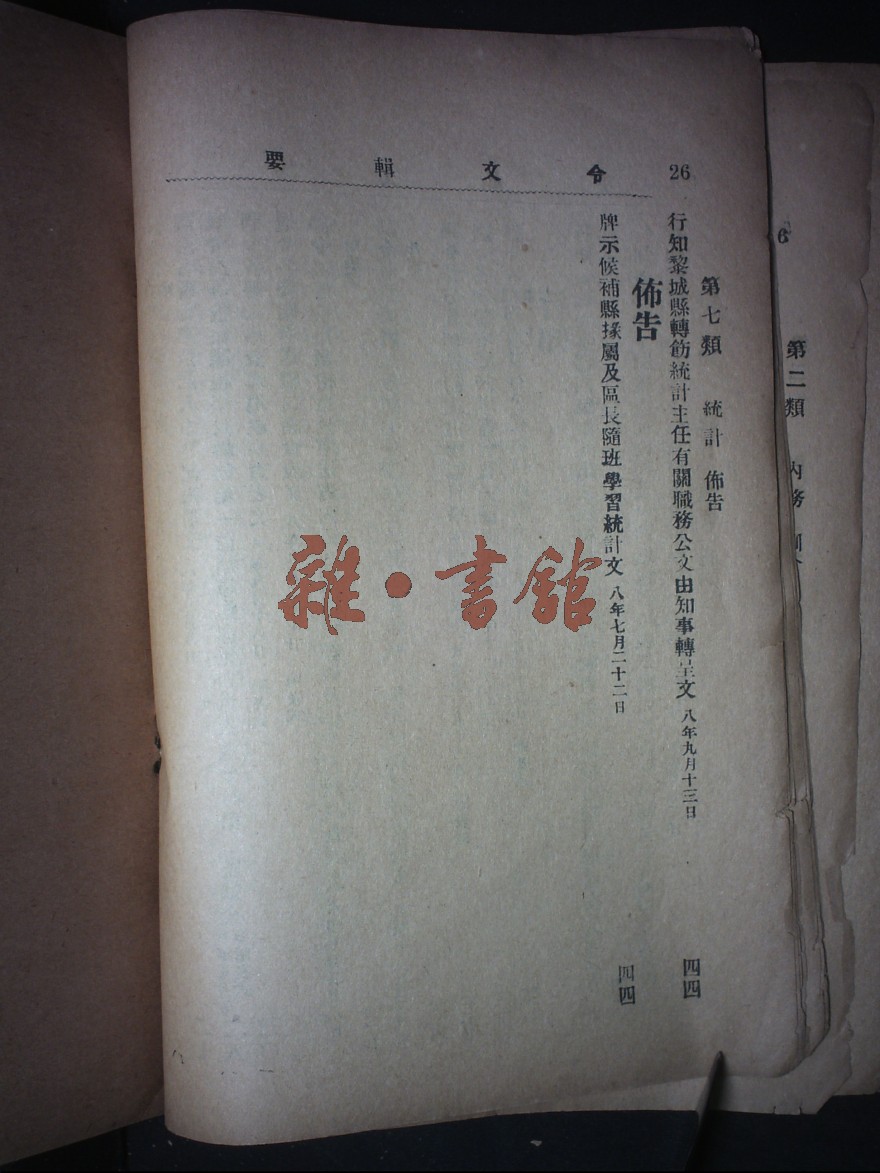 26
令文輯要
第七類　統計　佈告
行知黎城縣轉飭統計主任有關職務公文由知事轉呈文 八年九月十三日 四四
佈告
牌示候補縣掾屬及區長隨班學習統計文 八年七月二十二日 四四
雜・書館
6
第二類　內務